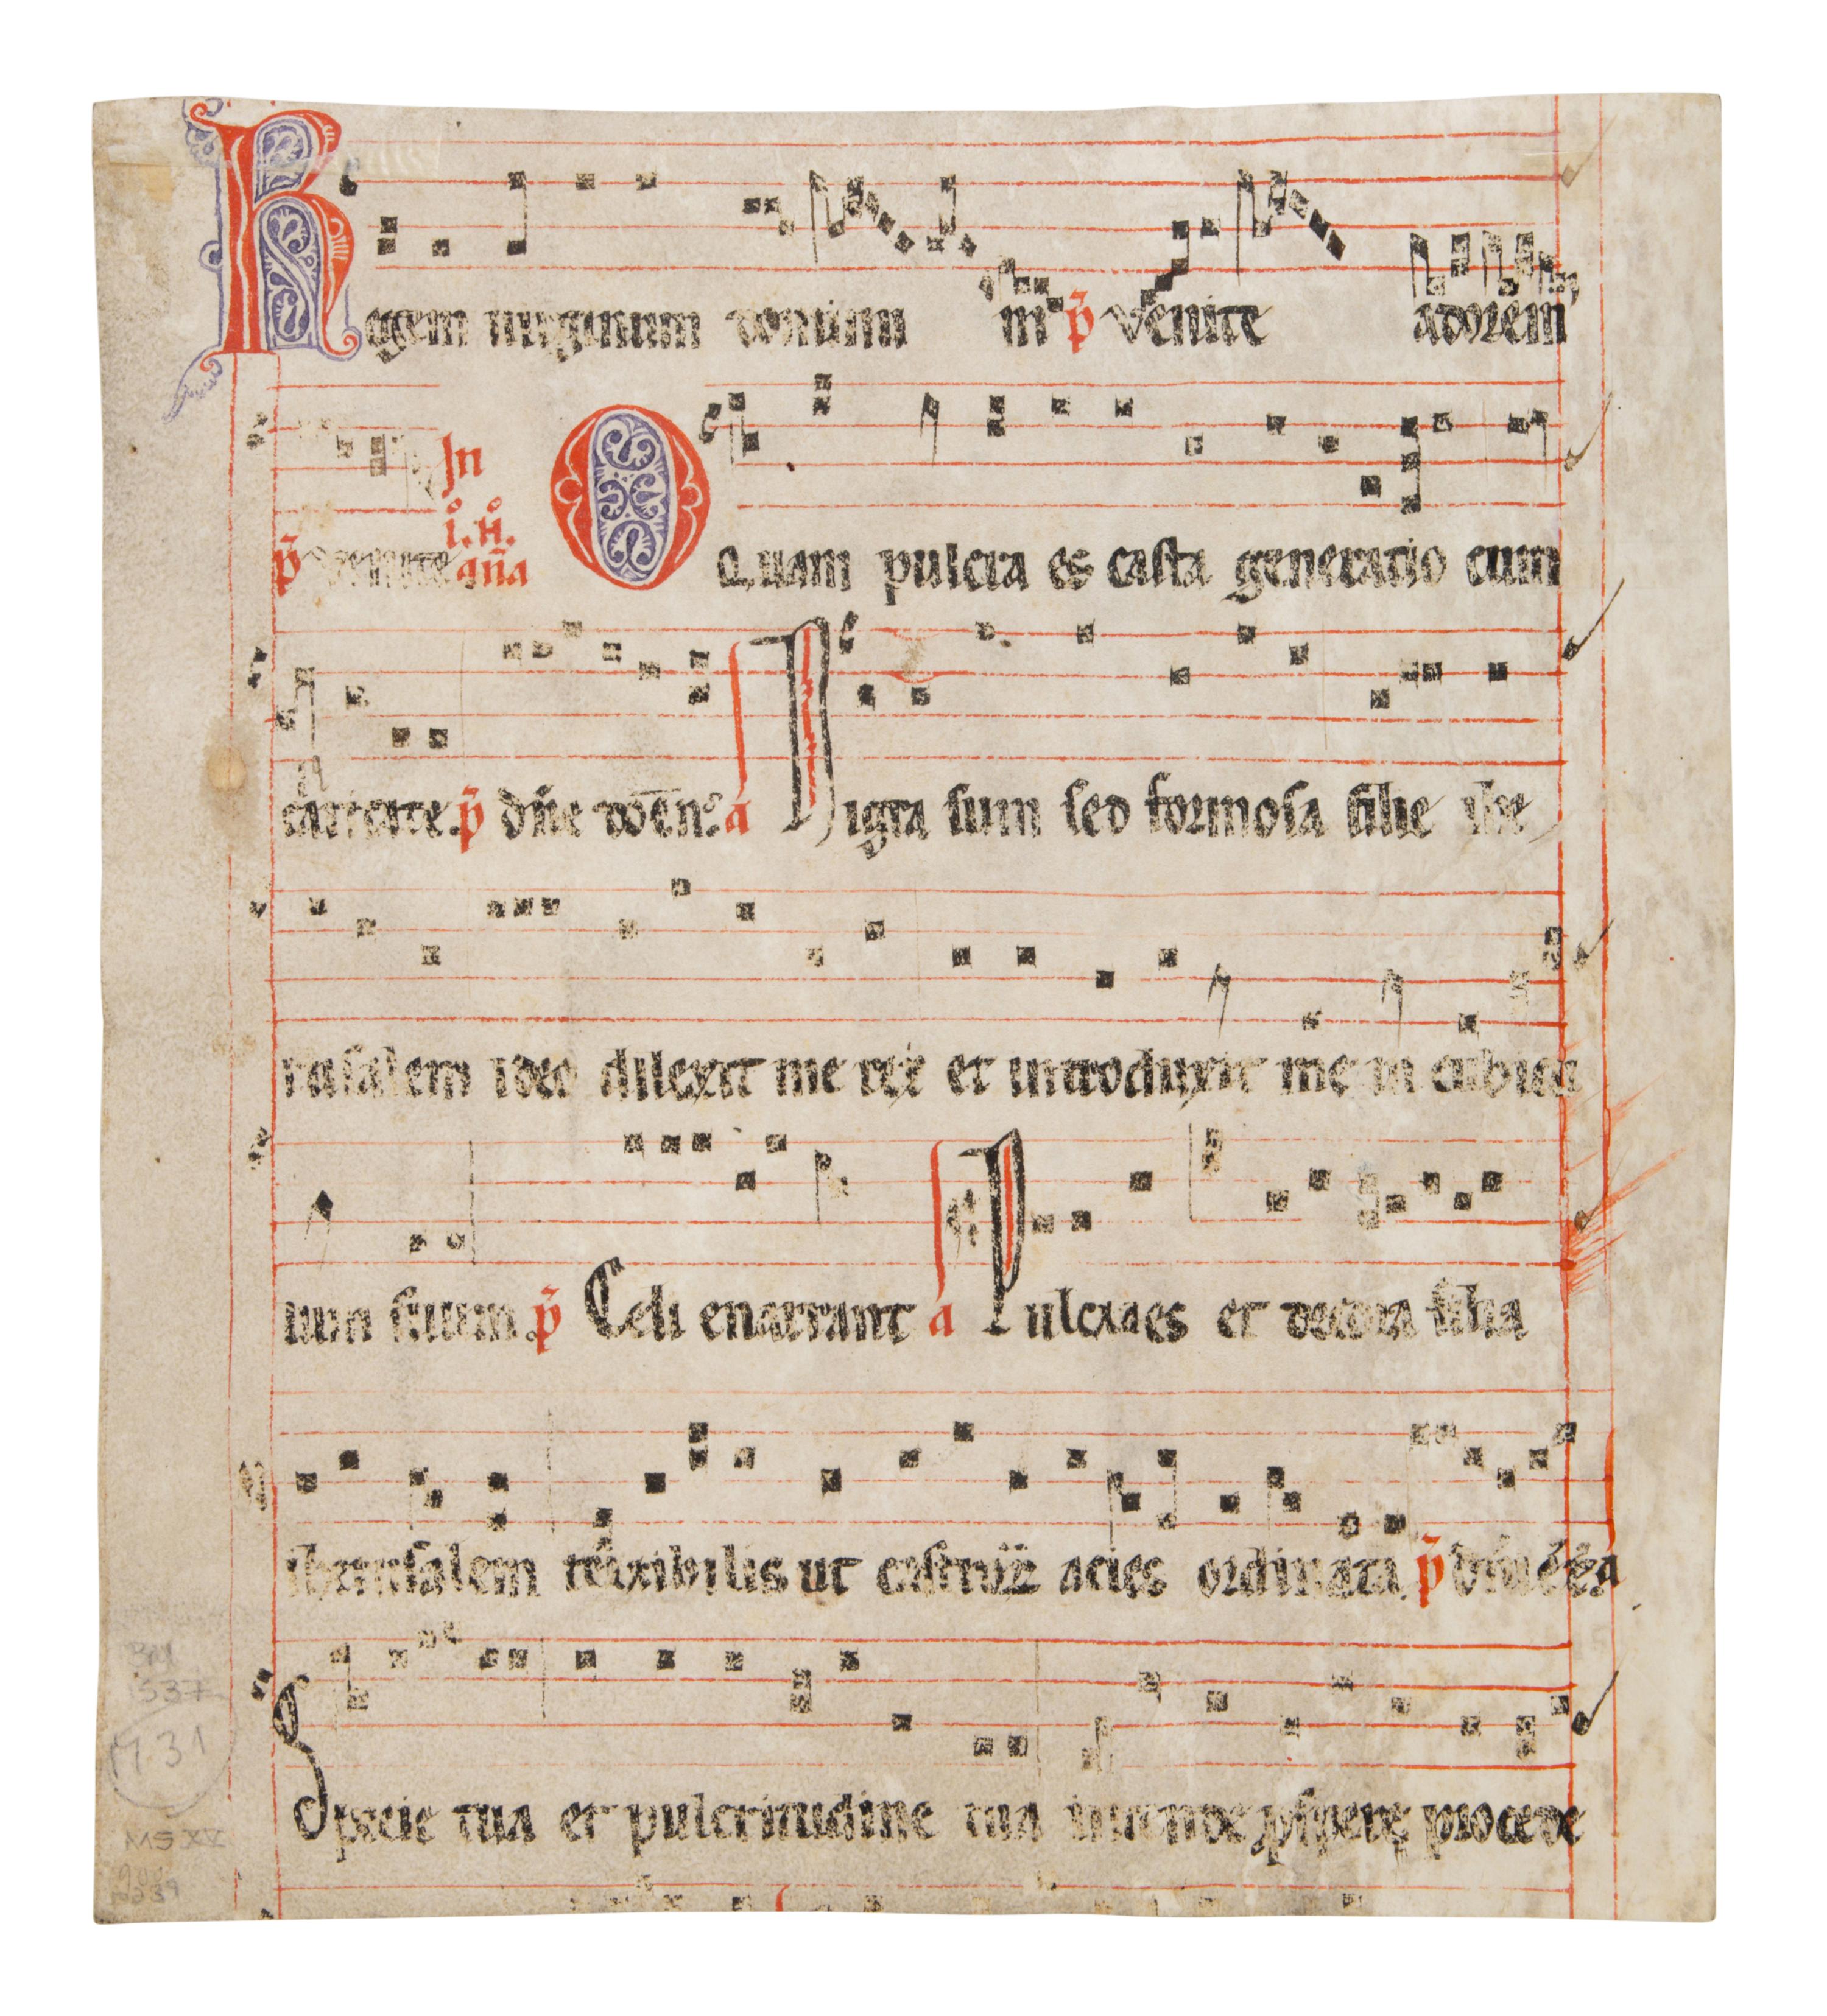 Regem uirginum dominum p̄ venite adorem
In
i. ii.
p̄ venite añа O Quam pulcra es casta generatio cum
caritate. p̄ dñe a Nigra sum sed formosa filie ihe
rusalem ideo dilexit me rex et introduxit me in cubicu
lum suum. p̄ Celi enarrant a Pulcra es et decora filia
iherusalem terribilis ut acies ordinata p̄
Specie tua et pulcritudine tua intende procede
337
M. 31
MS XV